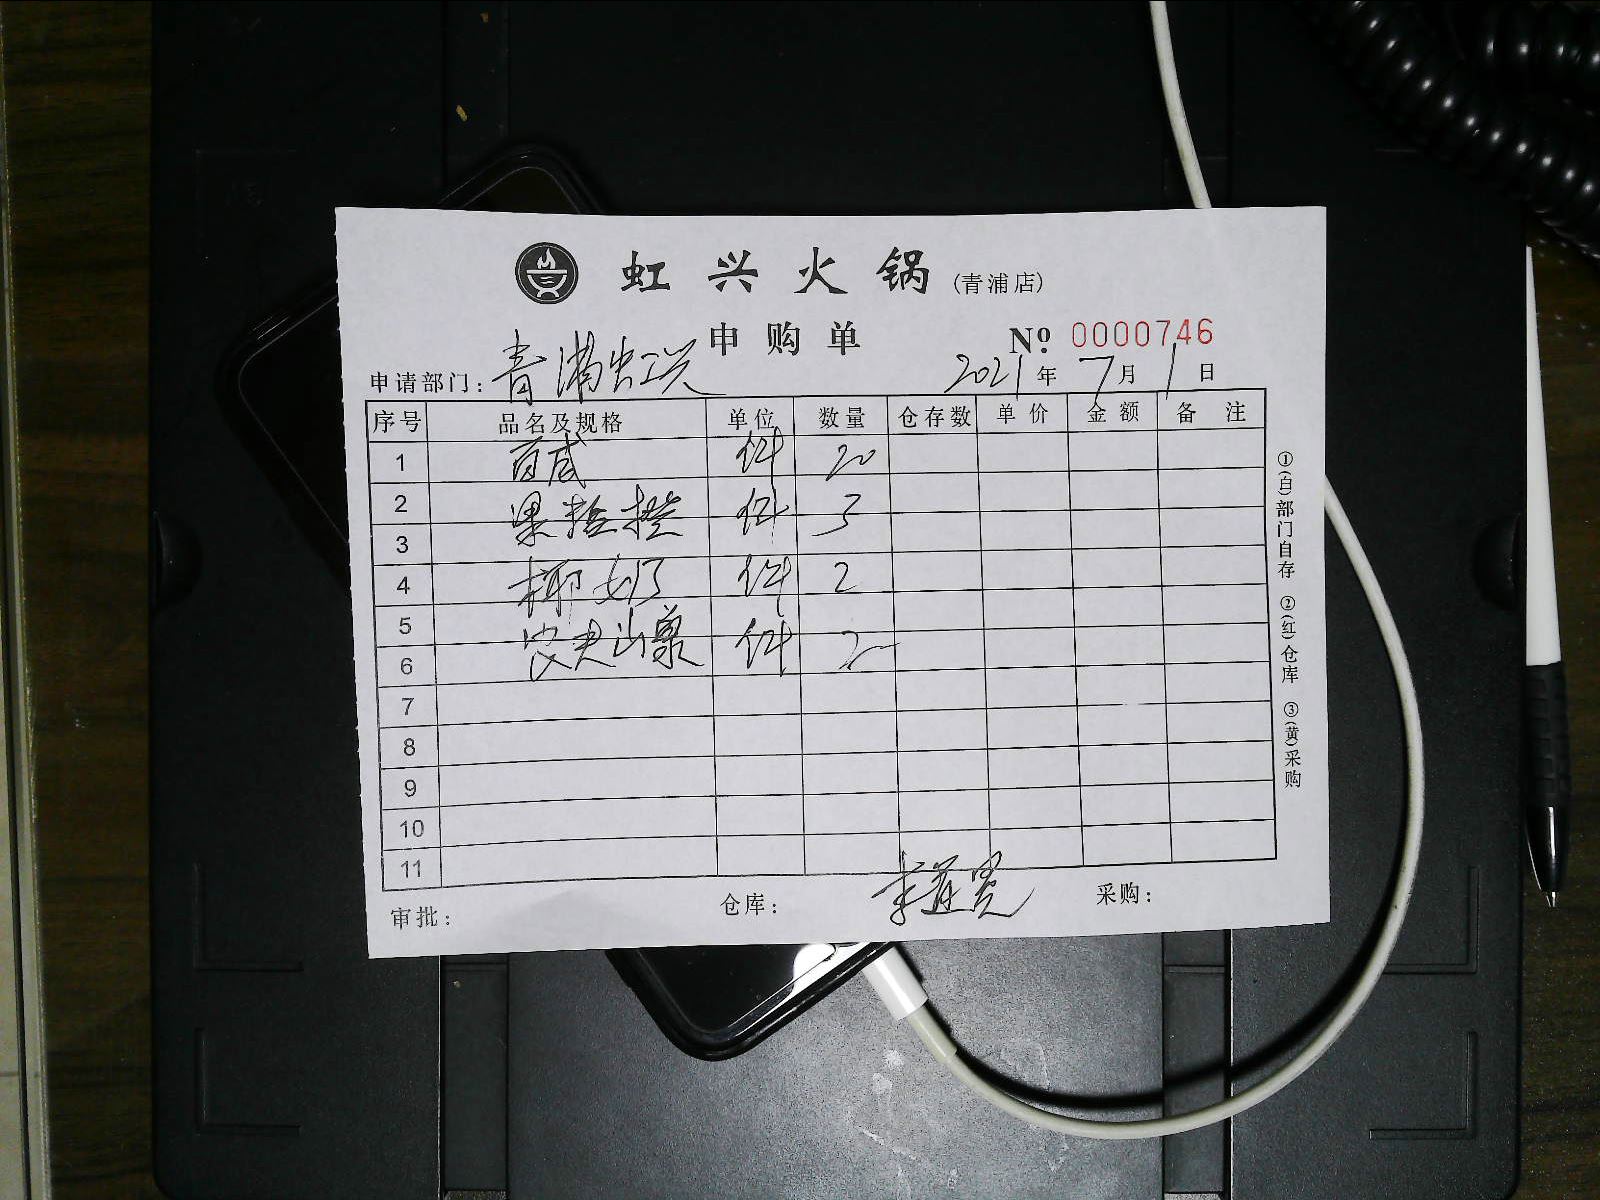 虹兴火锅(青浦店)
申购单 № 0000746
申请部门: 青浦虹兴 2021年7月1日
序号 品名及规格 单位 数量 仓存数 单价 金额 备注
1 百威 件 20
2 果粒橙 件 3
3
4 椰奶 件 2
5
6 农夫山泉 件 2
7
8
9
10
11
审批: 仓库: 采购:
①(白)部门自存 ②(红)仓库 ③(黄)采购